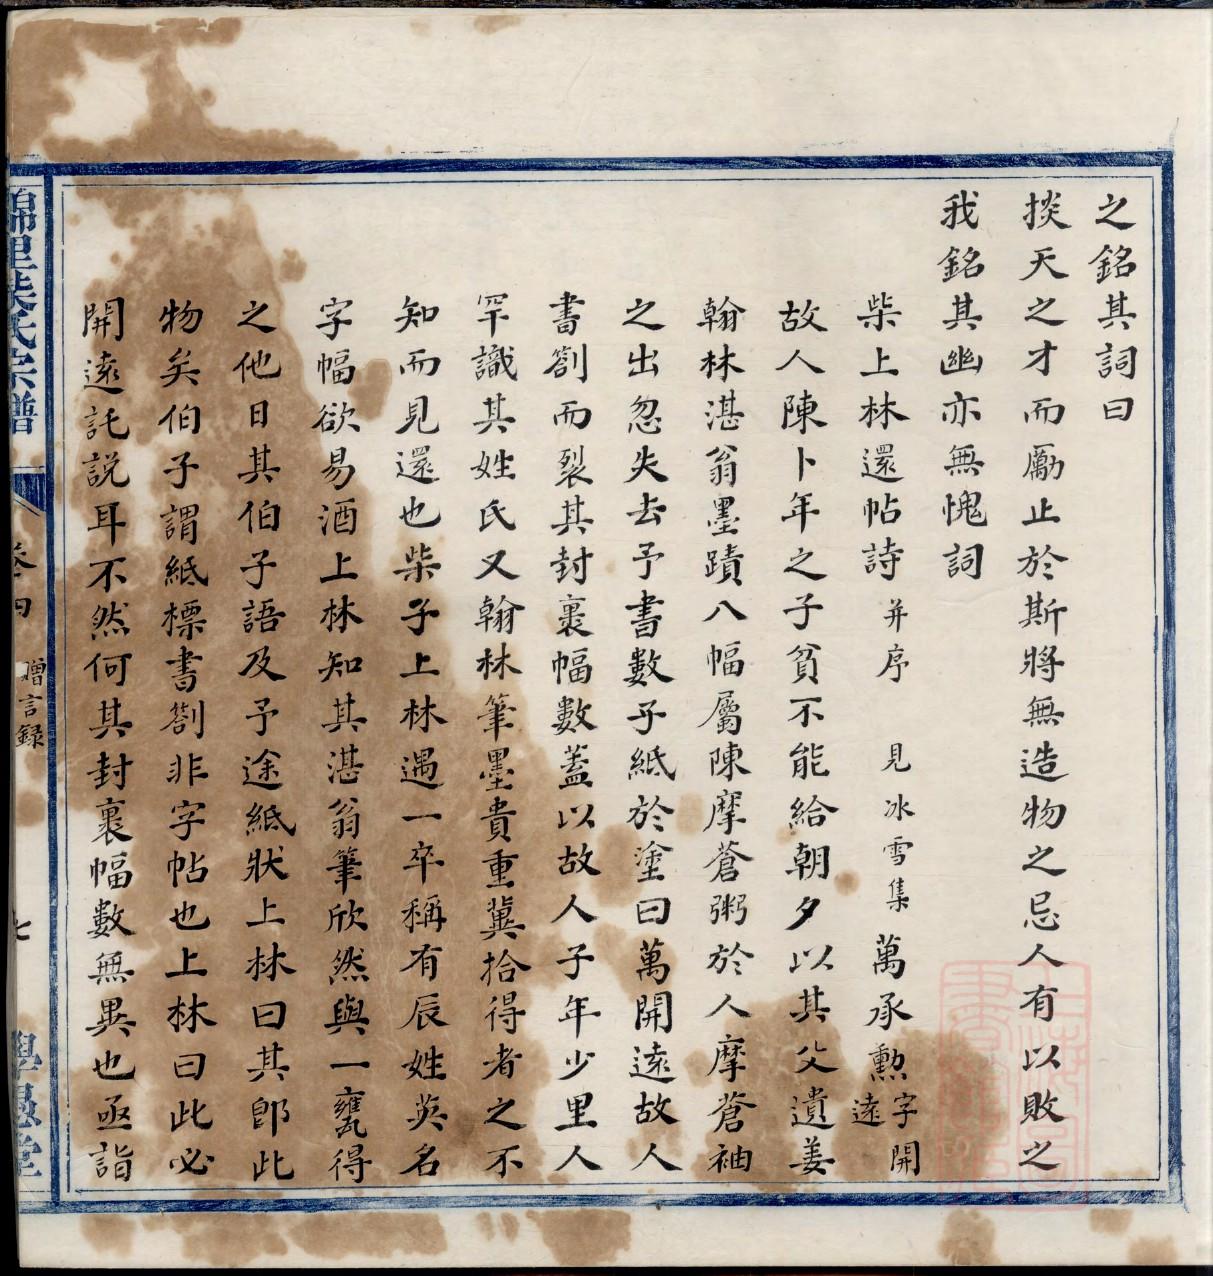 之銘其詞曰
掞天之才而勵止於斯將無造物之忌人有以敗之
我銘其幽亦無愧詞
柴上林還帖詩 并序 見冰雪集 萬承勳 字開遠
故人陳卜年之子貧不能給朝夕以其父遺姜
翰林湛翁墨蹟八幅屬陳摩蒼粥於人摩蒼袖
之出忽失去予書數子紙於塗曰萬開遠故人
書劄而裂其封裹幅數蓋以故人子年少里人
罕識其姓氏又翰林筆墨貴重冀拾得者之不
知而見還也柴子上林遇一卒稱有辰姓英名
字幅欲易酒上林知其湛翁筆欣然與一甕得
之他日其伯子語及予途紙狀上林曰其卽此
物矣伯子謂紙標書劄非字帖也上林曰此必
開遠託説耳不然何其封裹幅數無異也亟詣
柴氏宗譜
卷四
贈言録
七
愚堂